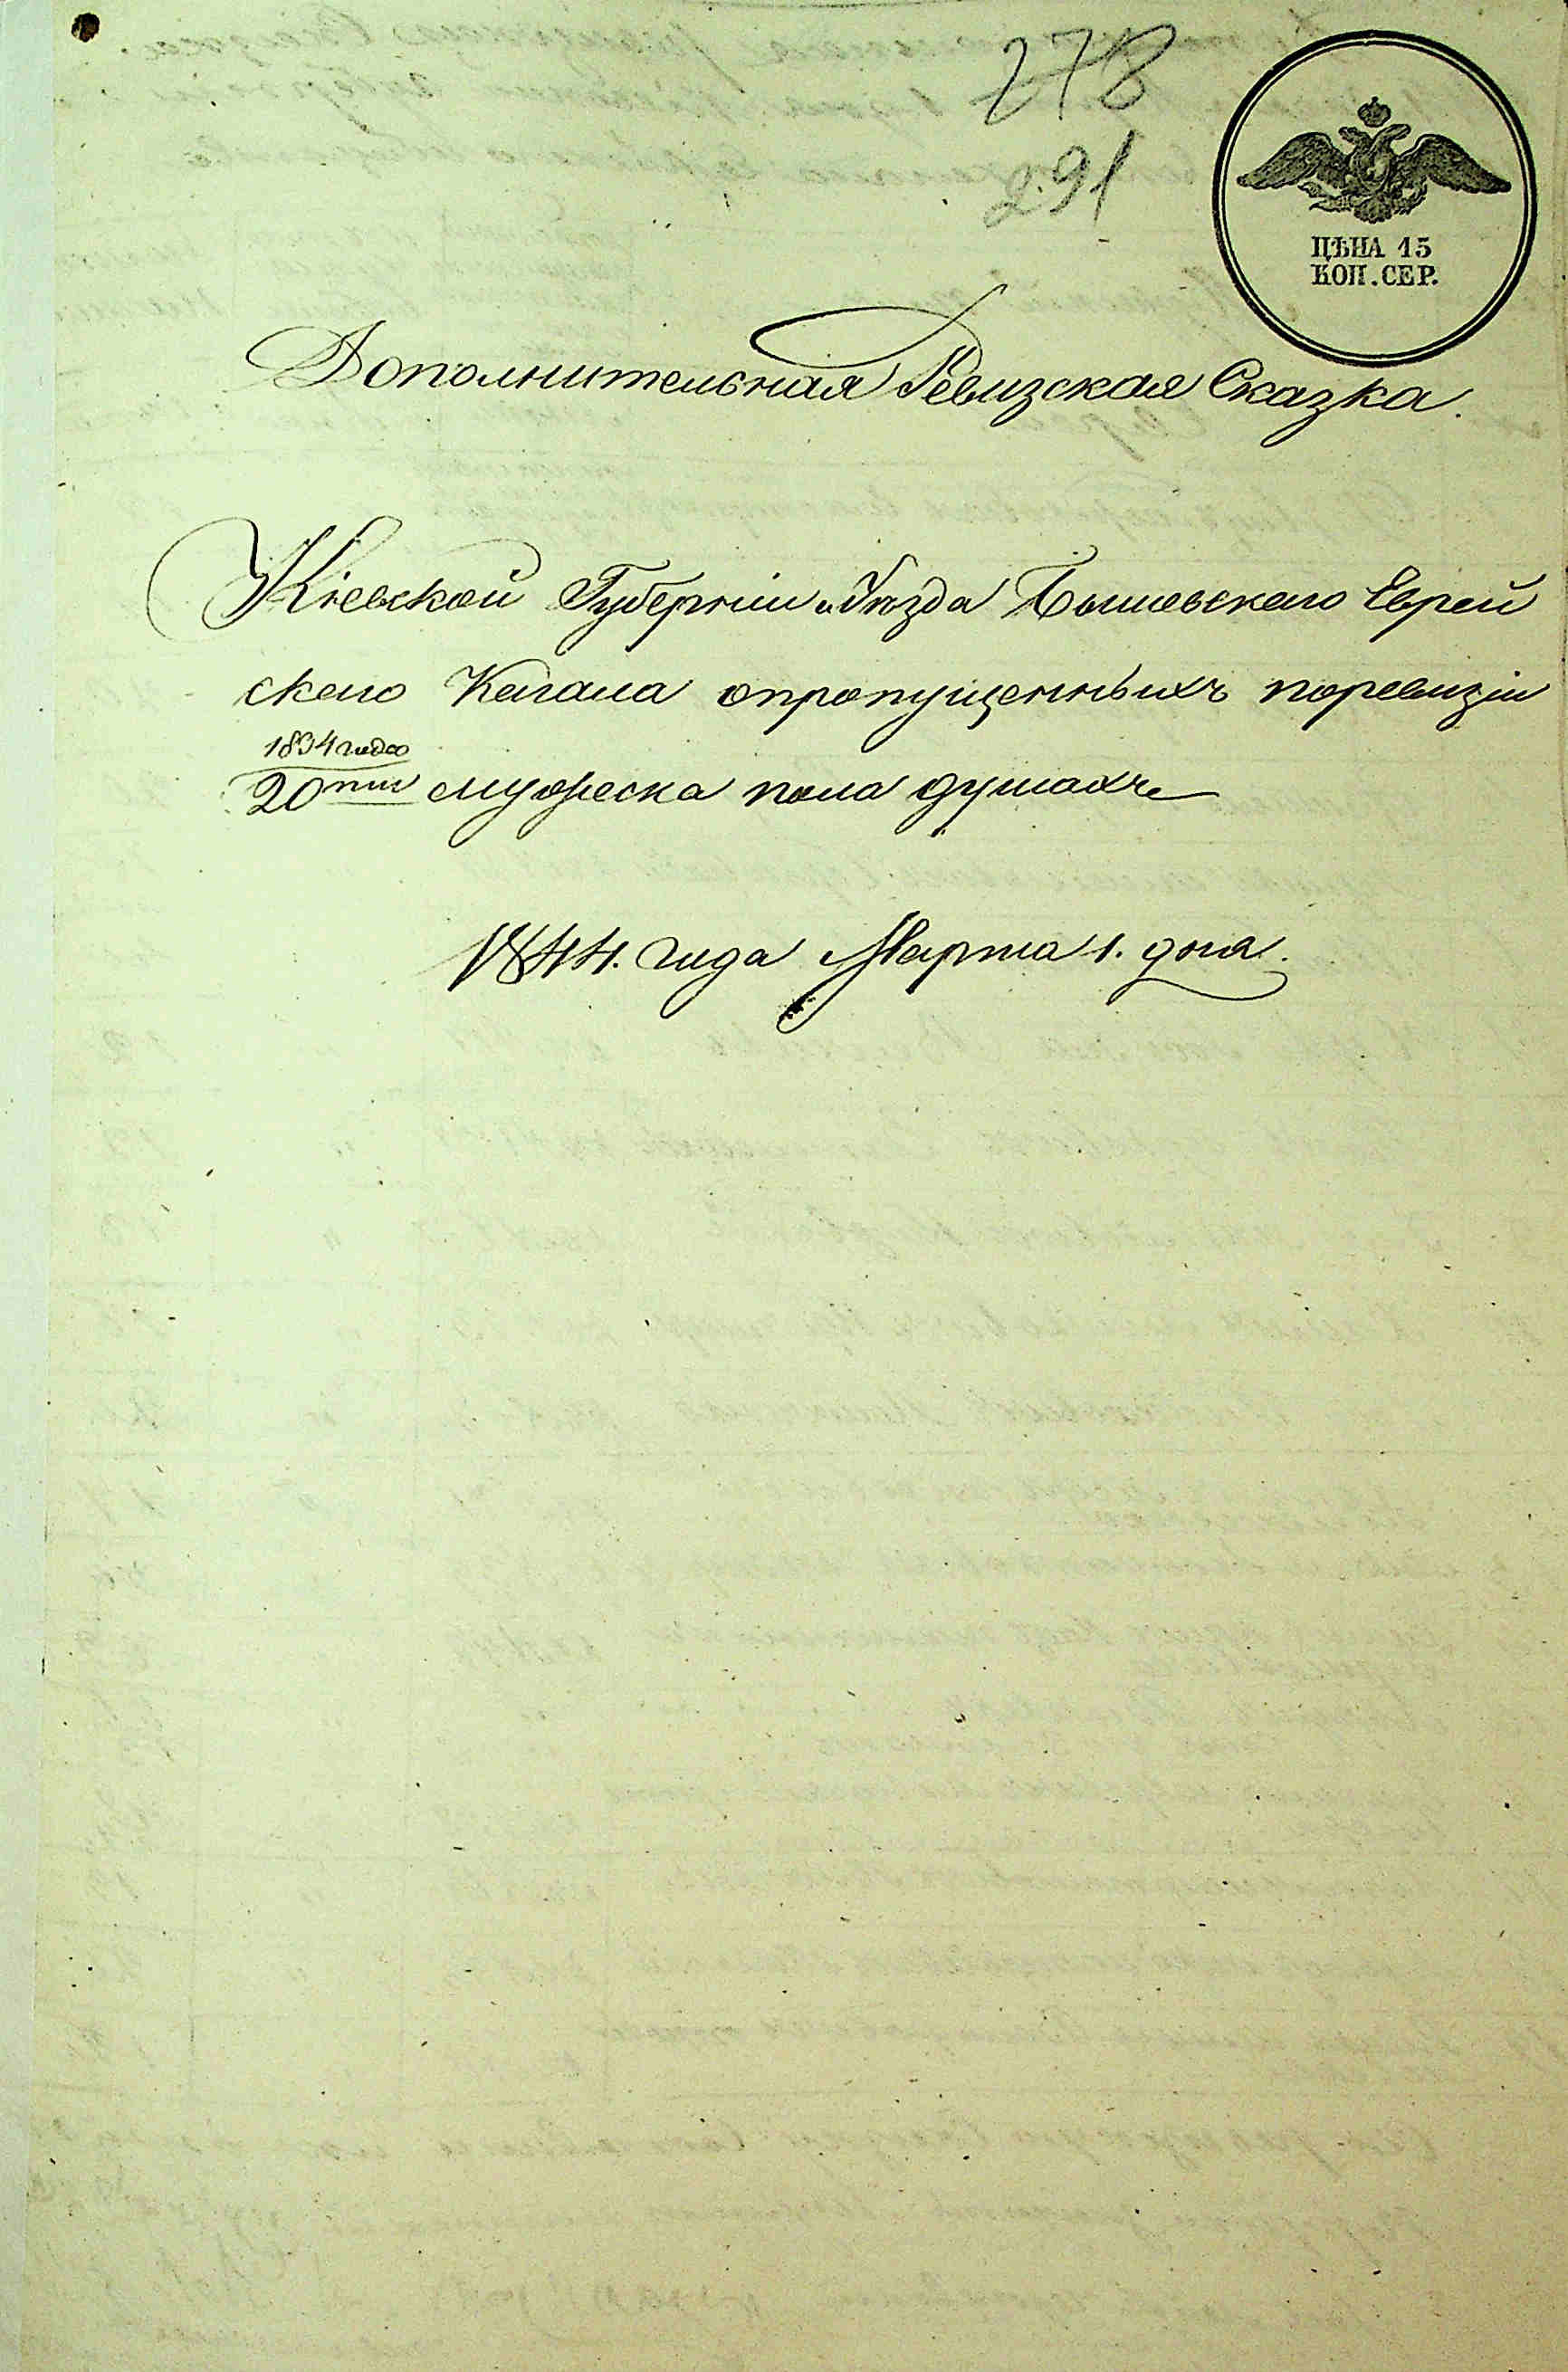 278
291
ЦѢНА 15
КОП. СЕР.
Дополнительная Ревизская Сказка.
Кіевской Губерніи и Уѣзда Бышевскаго Еврей
скаго Кагала опропущенныхъ поревизіи
1834 года
20ти мужеска пола душахъ
1844. года Марта 1. дня.